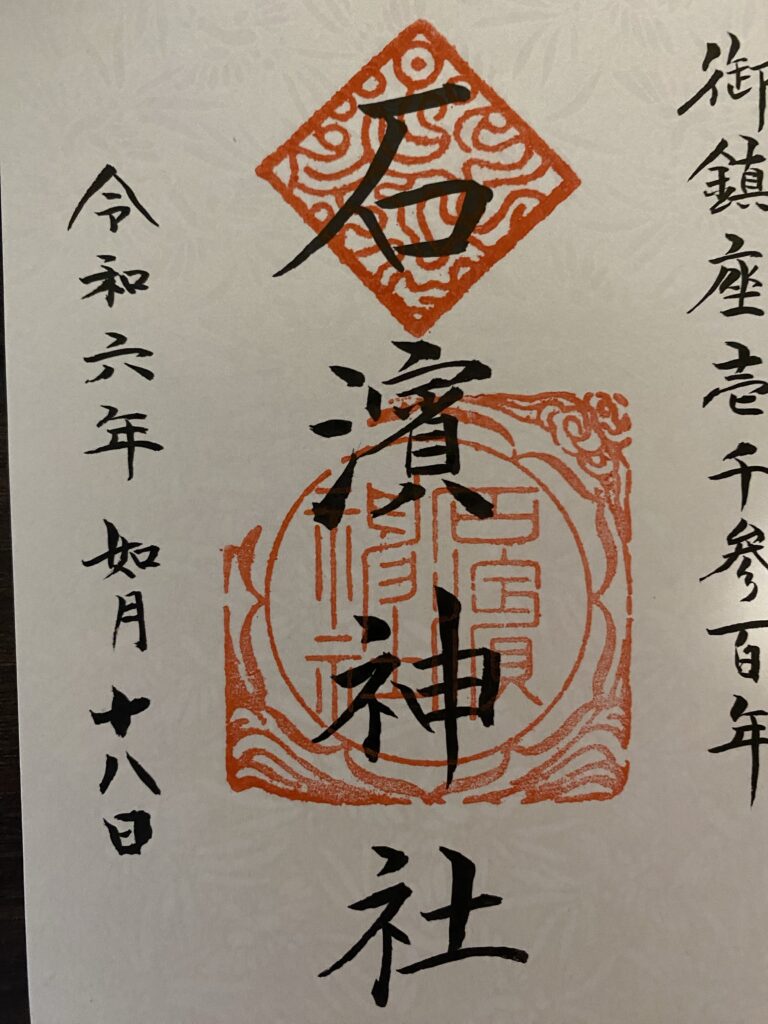 御鎮座壱千参百年
石濱神社
石濱神社
令和六年 如月 十八日